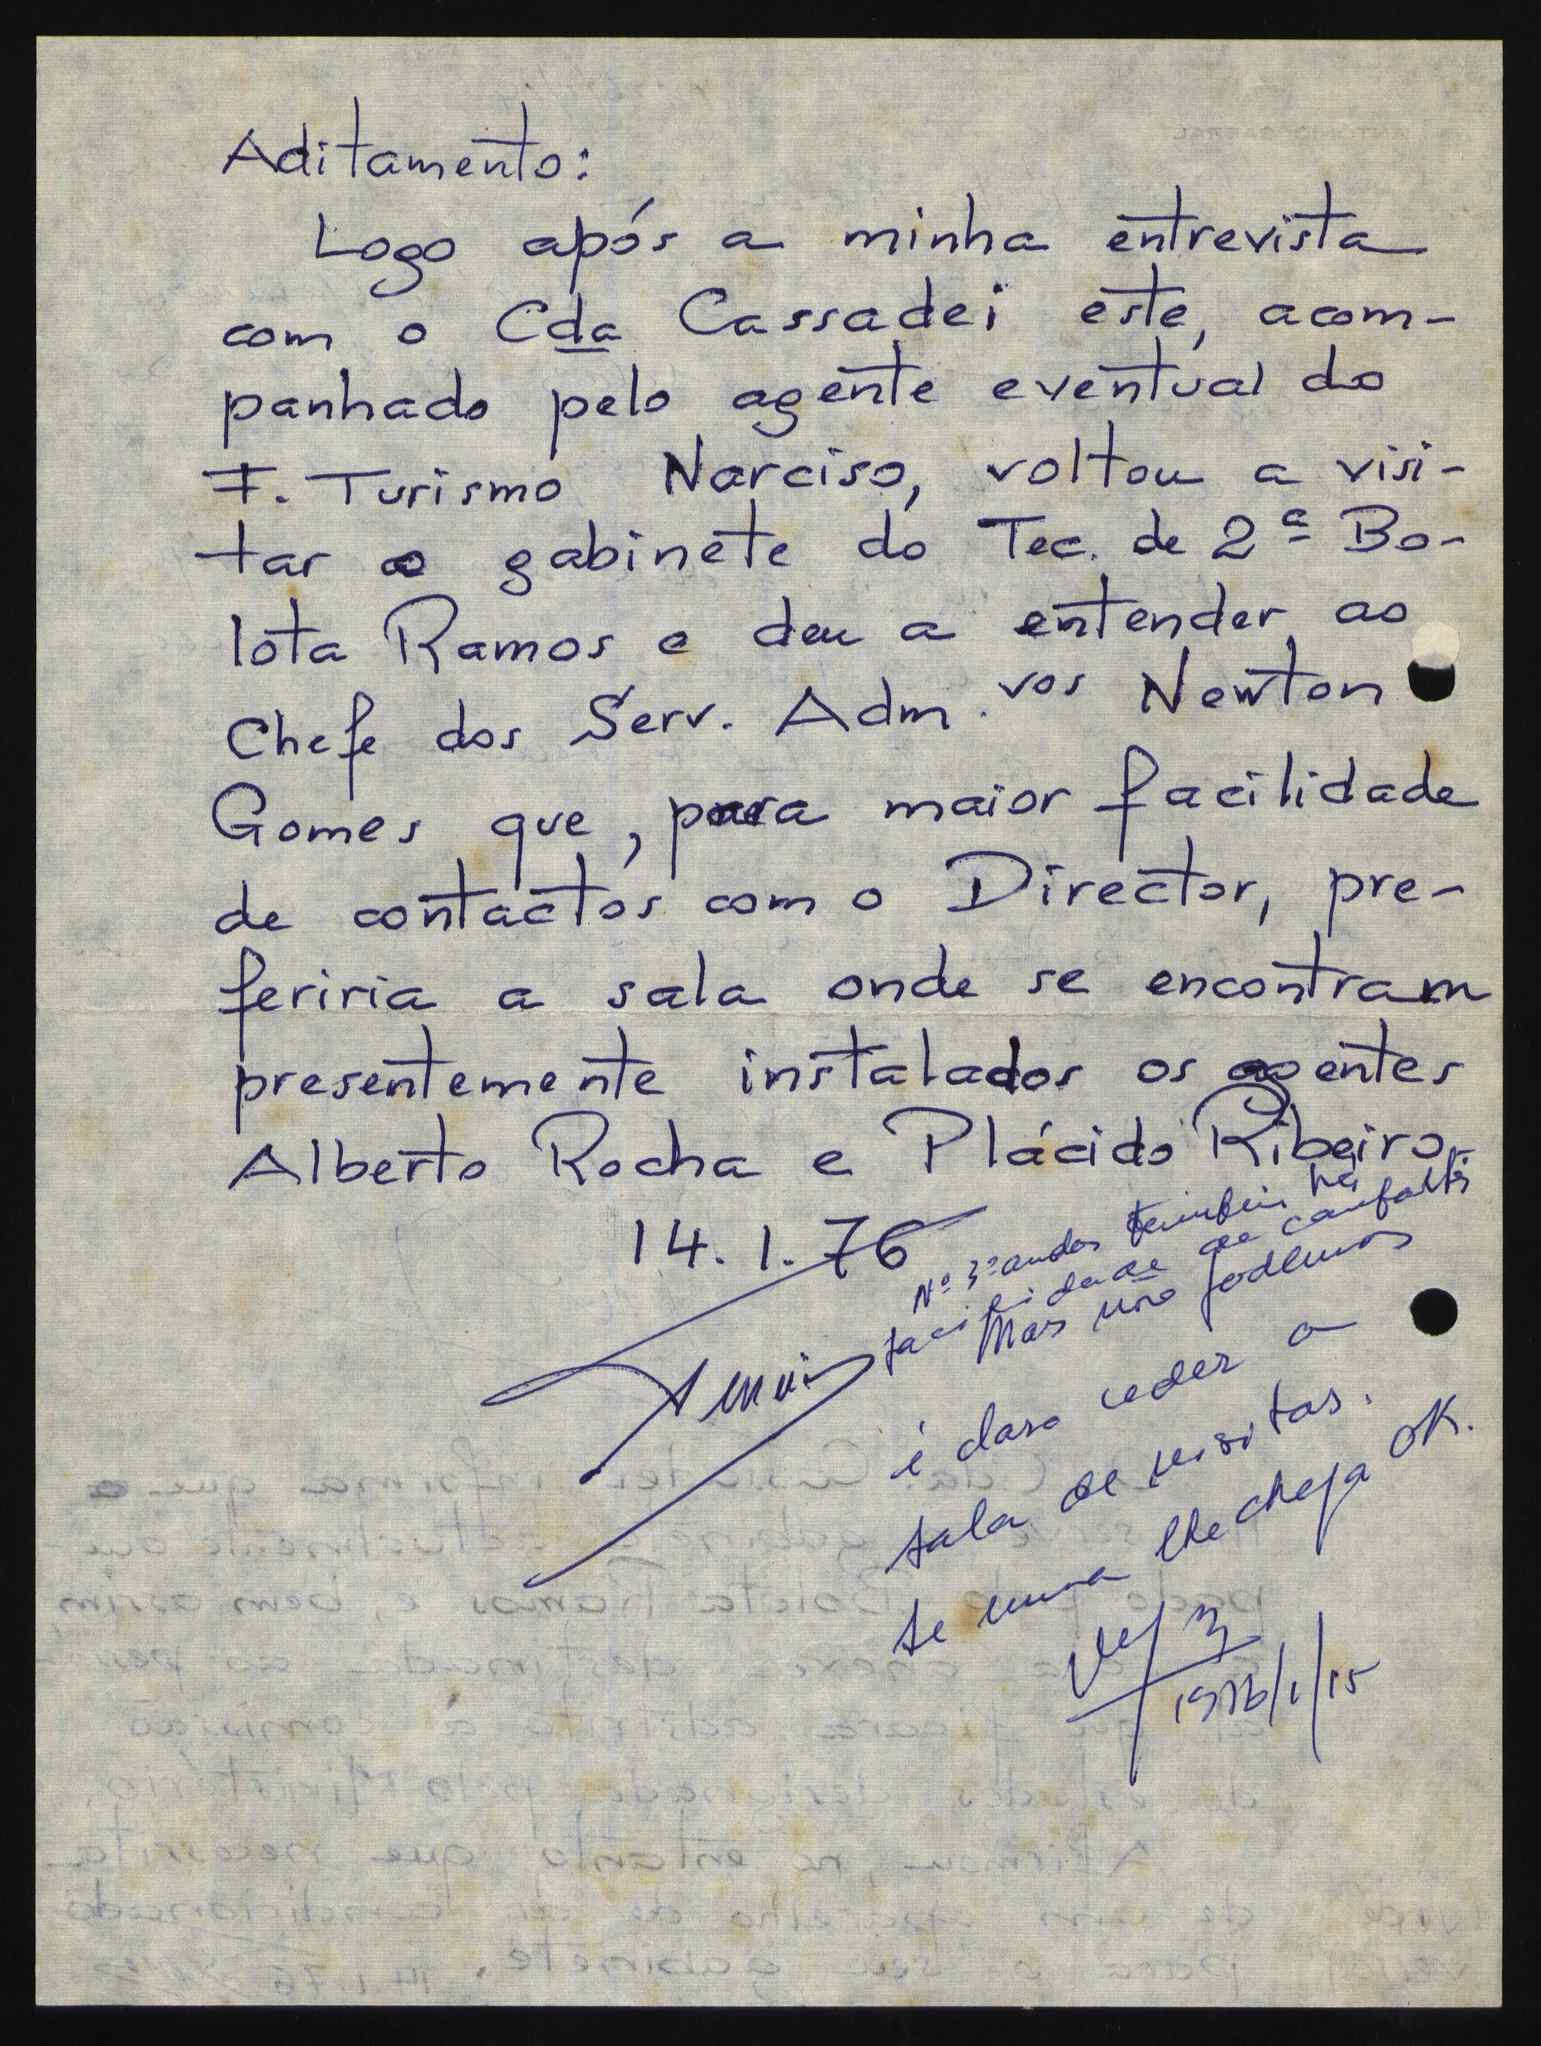 Aditamento:
Logo após a minha entrevista
com o Cda Cassadei este, acom-
panhado pelo agente eventual do
F. Turismo Narciso, voltou a visi-
tar o gabinete do Tec. de 2ª Bo-
lota Ramos e deu a entender, ao
Chefe dos Serv. Adm.vos Newton
Gomes que, para maior facilidade
de contactos com o Director, pre-
feriria a sala onde se encontram
presentemente instalados os agentes
Alberto Rocha e Plácido Ribeiro.
14.1.76
Nº 3º andar também há
facilidade de
Mas não podemos
é claro ceder a
sala de visitas.
se lhe chega OK.
1976/1/15